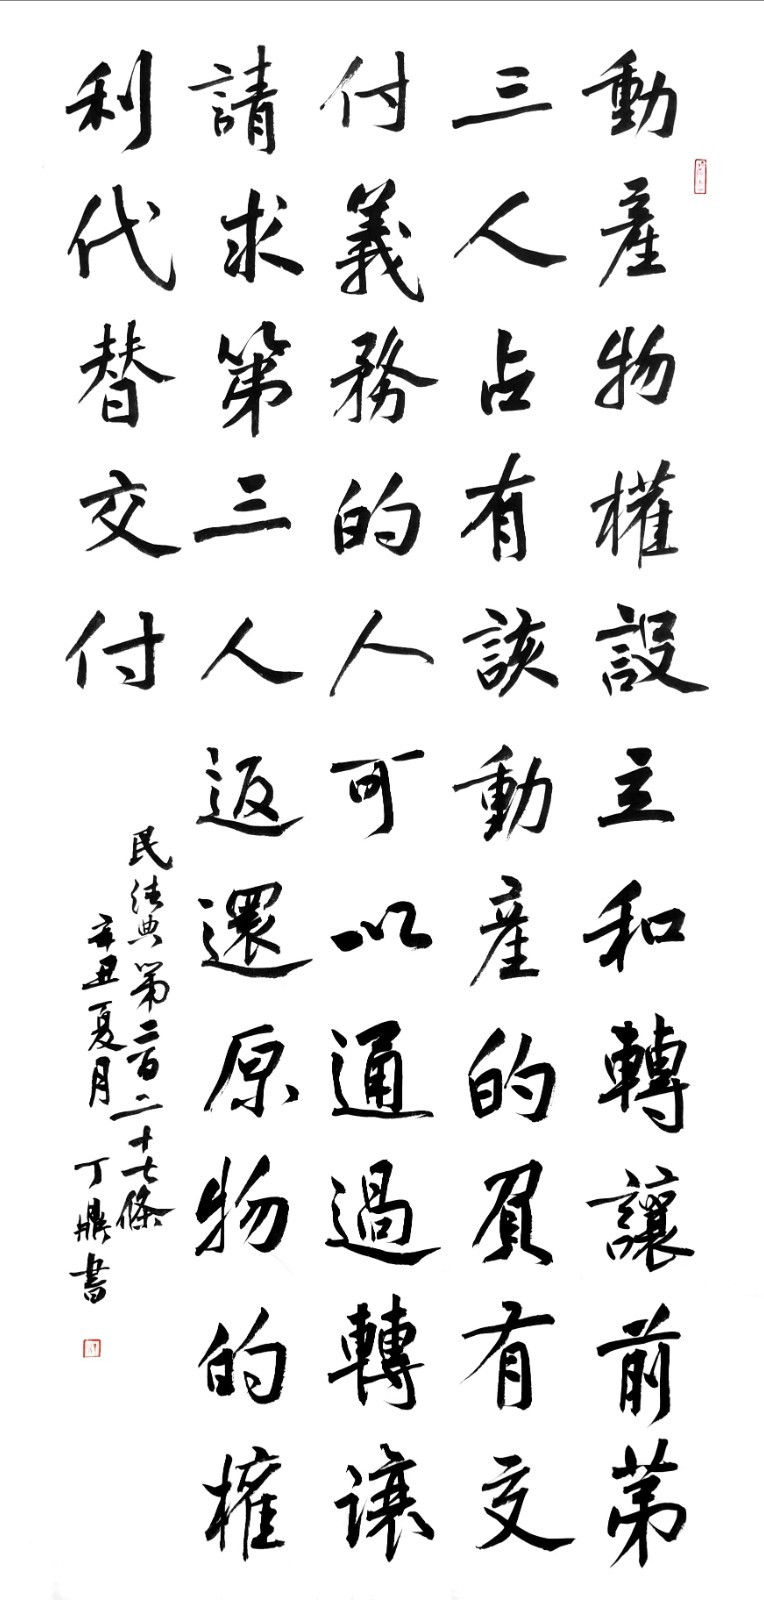 動產物權設立和轉讓前第
三人占有該動產的負有交
付義務的人可以通過轉讓
請求第三人返還原物的權
利代替交付
民法典第二百二十七條
辛丑夏月 丁鼎書